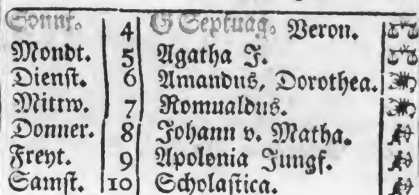 Sonnt. 4 G Septuag. Veron.
Mondt. 5 Agatha J.
Dienst. 6 Amandus, Dorothea.
Mittw. 7 Romualdus.
Donner. 8 Johann v. Matha.
Freyt. 9 Apolonia Jungf.
Samst. 10 Scholastica.